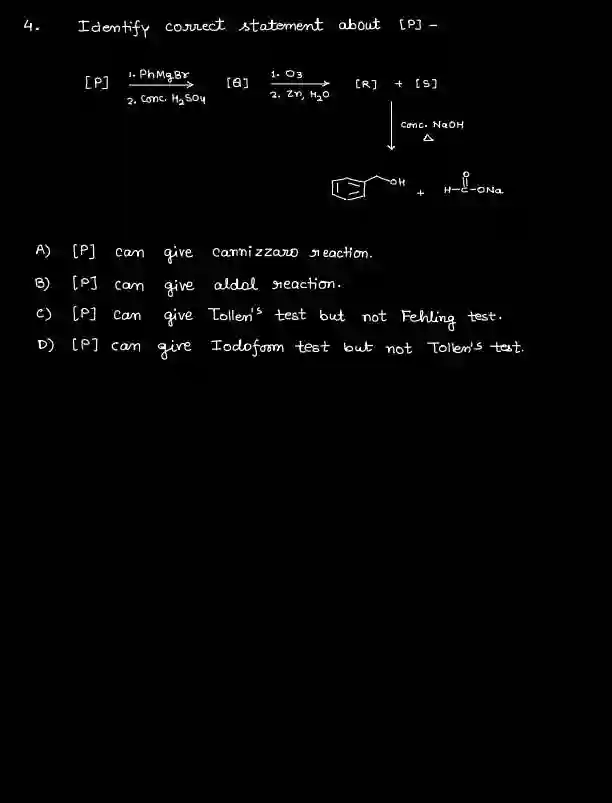 4. Identify correct statement about [P] -
[P] 1. PhMgBr 2. Conc. H2SO4 [Q] 1. O3 2. Zn, H2O [R] + [S]
Conc. NaOH
Δ
OH + H-C-ONa
O
A) [P] can give cannizzaro reaction.
B) [P] can give aldol reaction.
C) [P] can give Tollen's test but not Fehling test.
D) [P] can give Iodoform test but not Tollen's test.